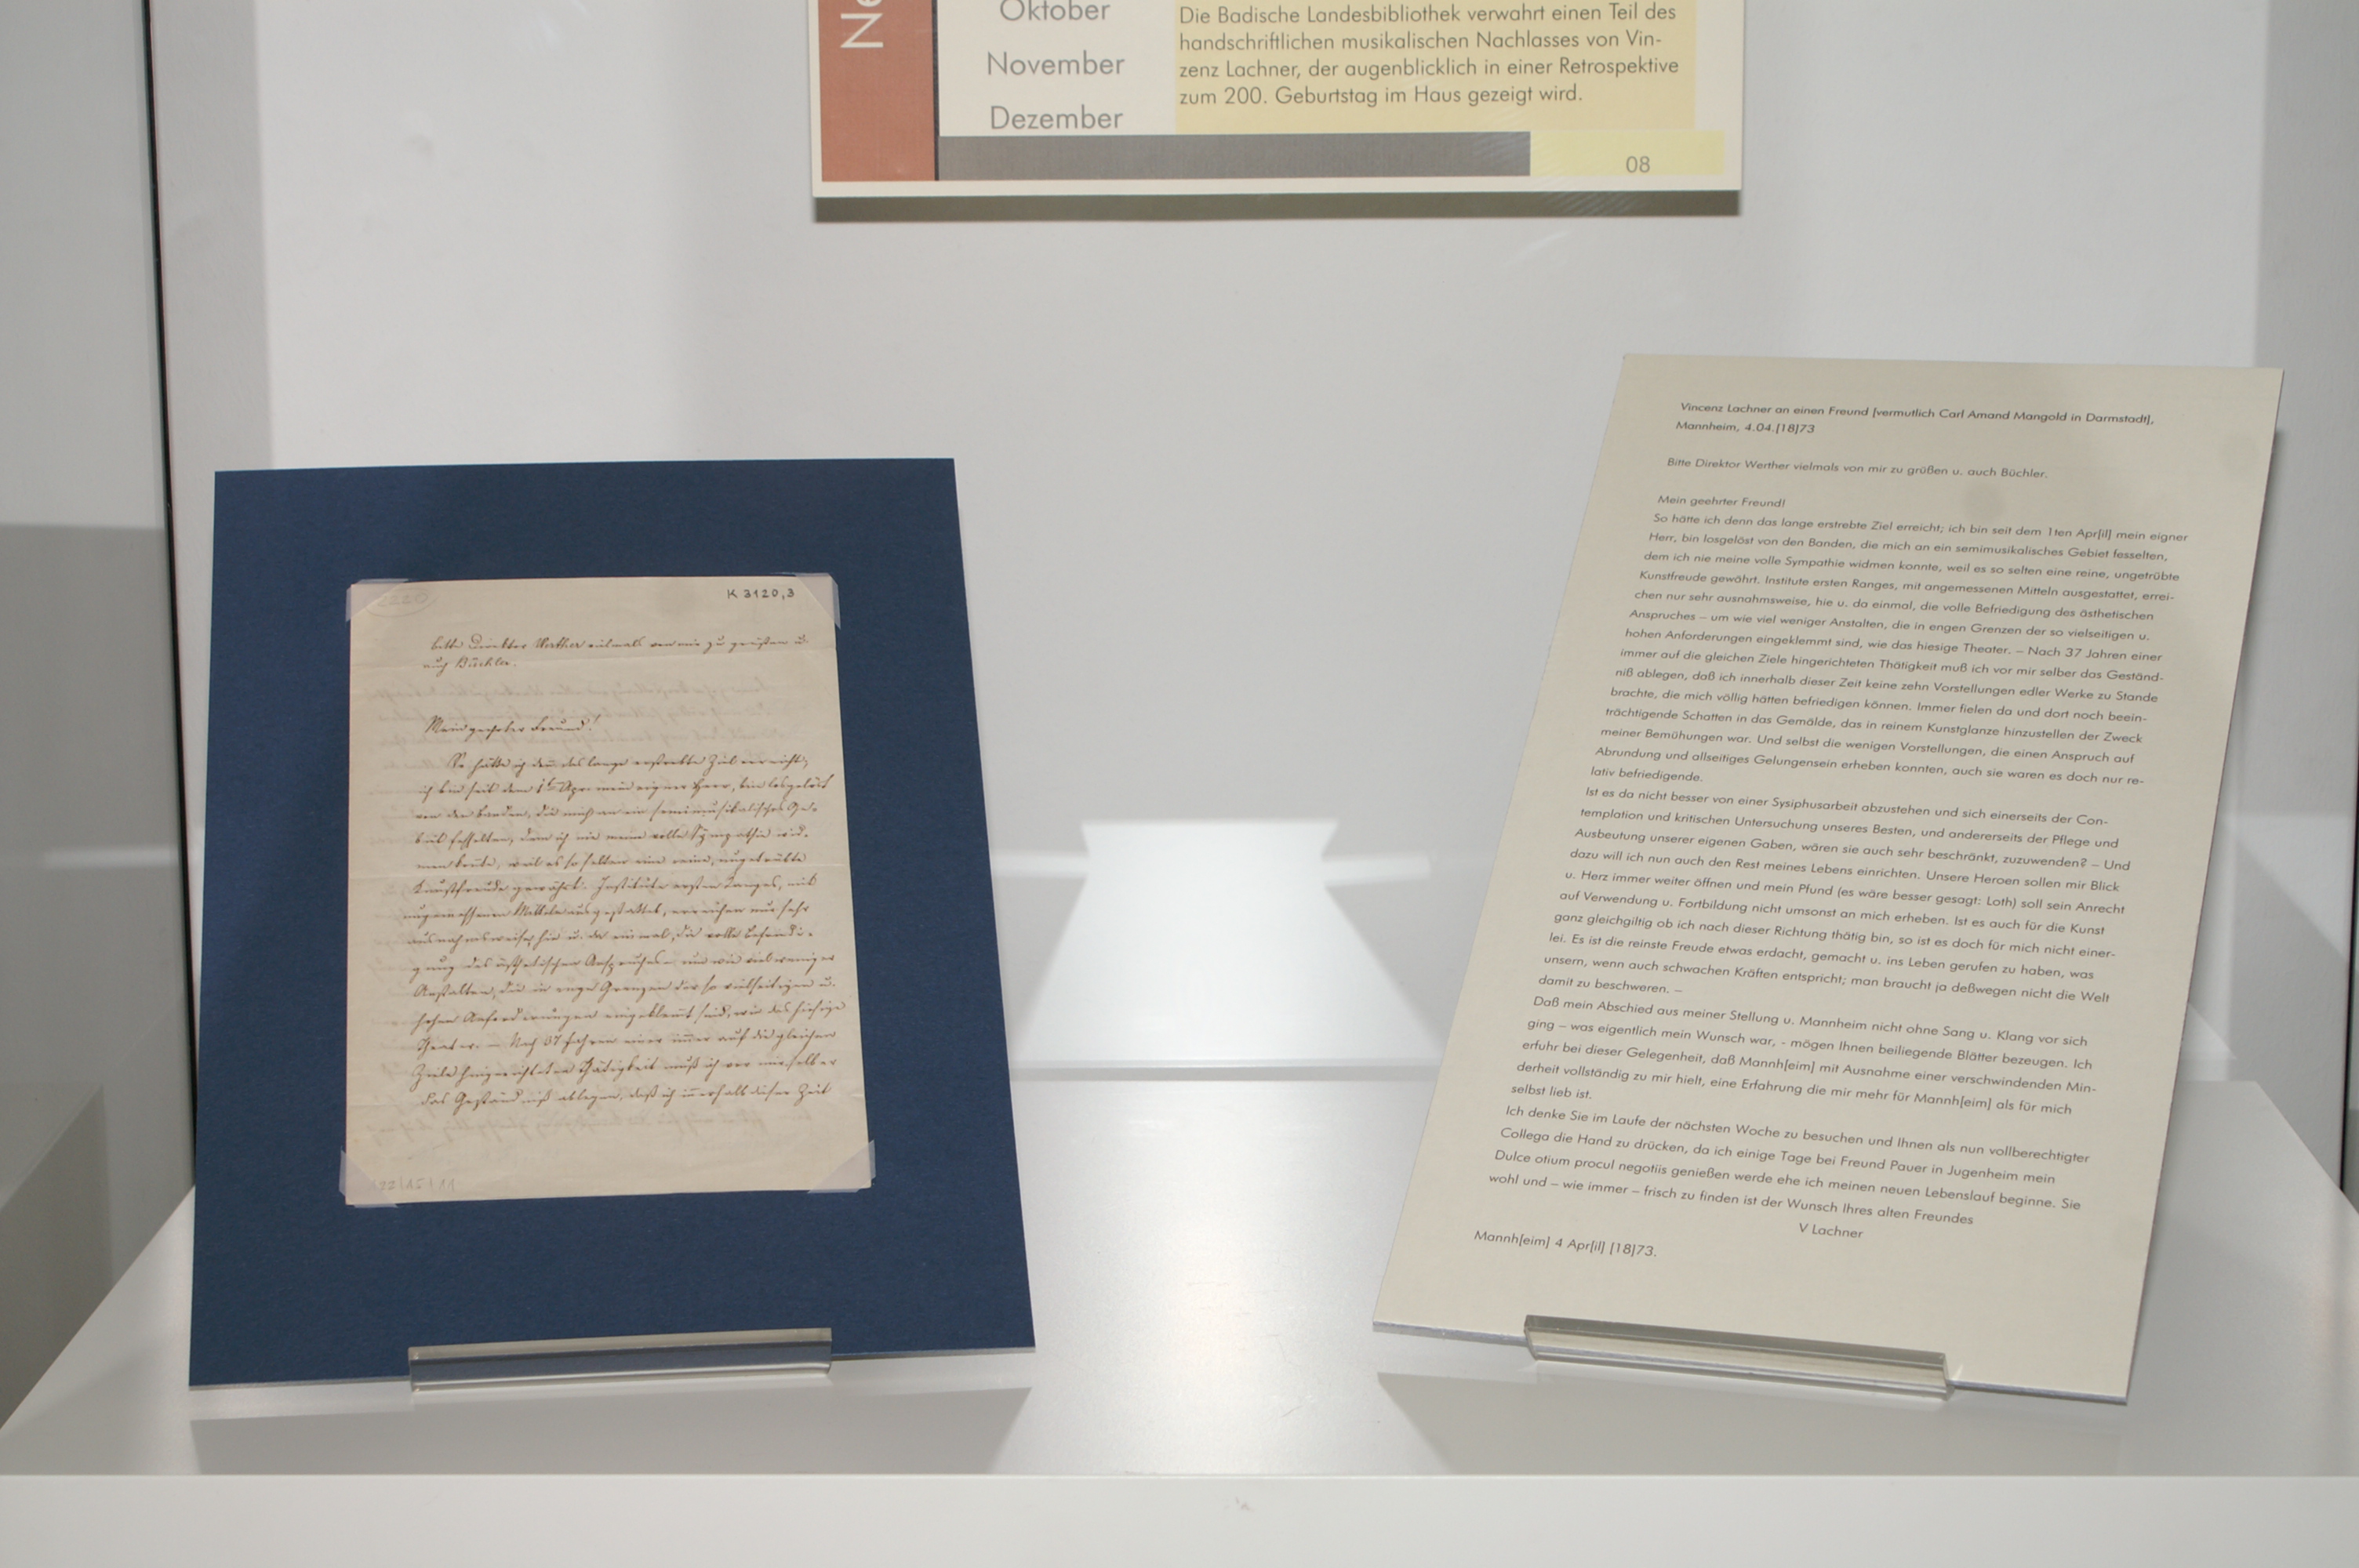 Ne
Oktober
November
Dezember
Die Badische Landesbibliothek verwahrt einen Teil des
handschriftlichen musikalischen Nachlasses von Vin-
zenz Lachner, der augenblicklich in einer Retrospektive
zum 200. Geburtstag im Haus gezeigt wird.
08
K 3120,3
bitte Direktor Werther vielmals von mir zu grüßen u.
auch Büchler.
Mein geehrter Freund!
So hätte ich denn das lange erstrebte Ziel erreicht;
ich bin seit dem 1ten Apr. mein eigner Herr, bin losgelöst
von den Banden, die mich an ein semimusikalisches Ge-
biet fesselten, dem ich nie meine volle Sympathie wid-
men konnte, weil es so selten eine reine, ungetrübte
Kunstfreude gewährt. Institute ersten Ranges, mit
angemessenen Mitteln ausgestattet, erreichen nur sehr
ausnahmsweise, hie u. da einmal, die volle Befriedi-
gung des ästhetischen Anspruches – um wie viel weniger
Anstalten, die in enge Grenzen der so vielseitigen u.
hohen Anforderungen eingeklemmt sind, wie das hiesige
Theater. – Nach 37 Jahren einer immer auf die gleichen
Ziele hingerichteten Thätigkeit muß ich vor mir selber
das Geständniß ablegen, daß ich innerhalb dieser Zeit
Vincenz Lachner an einen Freund [vermutlich Carl Amand Mangold in Darmstadt],
Mannheim, 4.04.[18]73
Bitte Direktor Werther vielmals von mir zu grüßen u. auch Büchler.
Mein geehrter Freund!
So hätte ich denn das lange erstrebte Ziel erreicht; ich bin seit dem 1ten Apr[il] mein eigner
Herr, bin losgelöst von den Banden, die mich an ein semimusikalisches Gebiet fesselten,
dem ich nie meine volle Sympathie widmen konnte, weil es so selten eine reine, ungetrübte
Kunstfreude gewährt. Institute ersten Ranges, mit angemessenen Mitteln ausgestattet, errei-
chen nur sehr ausnahmsweise, hie u. da einmal, die volle Befriedigung des ästhetischen
Anspruches – um wie viel weniger Anstalten, die in engen Grenzen der so vielseitigen u.
hohen Anforderungen eingeklemmt sind, wie das hiesige Theater. – Nach 37 Jahren einer
immer auf die gleichen Ziele hingerichteten Thätigkeit muß ich vor mir selber das Geständ-
niß ablegen, daß ich innerhalb dieser Zeit keine zehn Vorstellungen edler Werke zu Stande
brachte, die mich völlig hätten befriedigen können. Immer fielen da und dort noch beein-
trächtigende Schatten in das Gemälde, das in reinem Kunstglanze hinzustellen der Zweck
meiner Bemühungen war. Und selbst die wenigen Vorstellungen, die einen Anspruch auf
Abrundung und allseitiges Gelungensein erheben konnten, auch sie waren es doch nur re-
lativ befriedigende.
Ist es da nicht besser von einer Sysiphusarbeit abzustehen und sich einerseits der Con-
templation und kritischen Untersuchung unseres Besten, und andererseits der Pflege und
Ausbeutung unserer eigenen Gaben, wären sie auch sehr beschränkt, zuzuwenden? – Und
dazu will ich nun auch den Rest meines Lebens einrichten. Unsere Heroen sollen mir Blick
u. Herz immer weiter öffnen und mein Pfund (es wäre besser gesagt: Loth) soll sein Anrecht
auf Verwendung u. Fortbildung nicht umsonst an mich erheben. Ist es auch für die Kunst
ganz gleichgiltig ob ich nach dieser Richtung thätig bin, so ist es doch für mich nicht einer-
lei. Es ist die reinste Freude etwas erdacht, gemacht u. ins Leben gerufen zu haben, was
unsern, wenn auch schwachen Kräften entspricht; man braucht ja deßwegen nicht die Welt
damit zu beschweren. –
Daß mein Abschied aus meiner Stellung u. Mannheim nicht ohne Sang u. Klang vor sich
ging – was eigentlich mein Wunsch war, - mögen Ihnen beiliegende Blätter bezeugen. Ich
erfuhr bei dieser Gelegenheit, daß Mannh[eim] mit Ausnahme einer verschwindenden Min-
derheit vollständig zu mir hielt, eine Erfahrung die mir mehr für Mannh[eim] als für mich
selbst lieb ist.
Ich denke Sie im Laufe der nächsten Woche zu besuchen und Ihnen als nun vollberechtigter
Collega die Hand zu drücken, da ich einige Tage bei Freund Pauer in Jugenheim mein
Dulce otium procul negotiis genießen werde ehe ich meinen neuen Lebenslauf beginne. Sie
wohl und – wie immer – frisch zu finden ist der Wunsch Ihres alten Freundes
V Lachner
Mannh[eim] 4 Apr[il] [18]73.